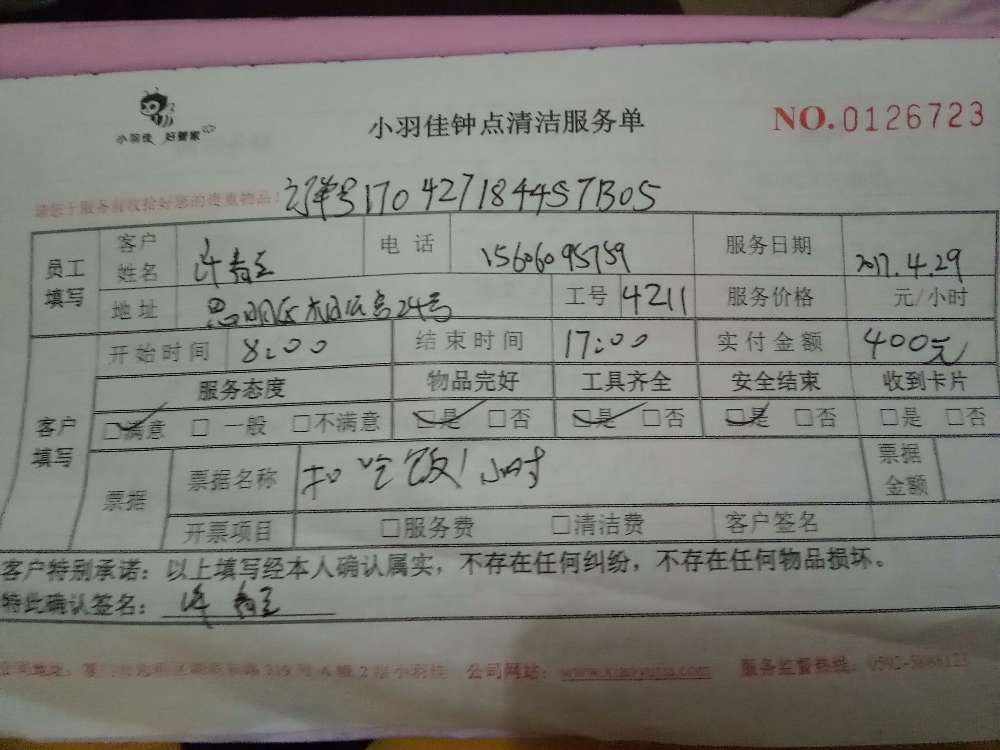 小羽佳 好管家
小羽佳钟点清洁服务单
NO.0126723
请您于服务前收拾好您的贵重物品!
订单号170427184457B05
员工填写 客户姓名 许 电话 15606095759 服务日期 2017.4.29
地址 思明区 24号 工号 4211 服务价格 元/小时
客户填写 开始时间 8:00 结束时间 17:00 实付金额 400元
服务态度 物品完好 工具齐全 安全结束 收到卡片
☑满意 □一般 □不满意 ☑是 □否 ☑是 □否 ☑是 □否 □是 □否
票据 票据名称 扣吃饭1小时 票据金额
开票项目 □服务费 □清洁费 客户签名
客户特别承诺：以上填写经本人确认属实，不存在任何纠纷，不存在任何物品损坏。
特此确认签名： 许
公司地址： 319号A幢2层小羽佳 公司网站：www.xiaoyujia.com 服务监督热线：0592-5086123